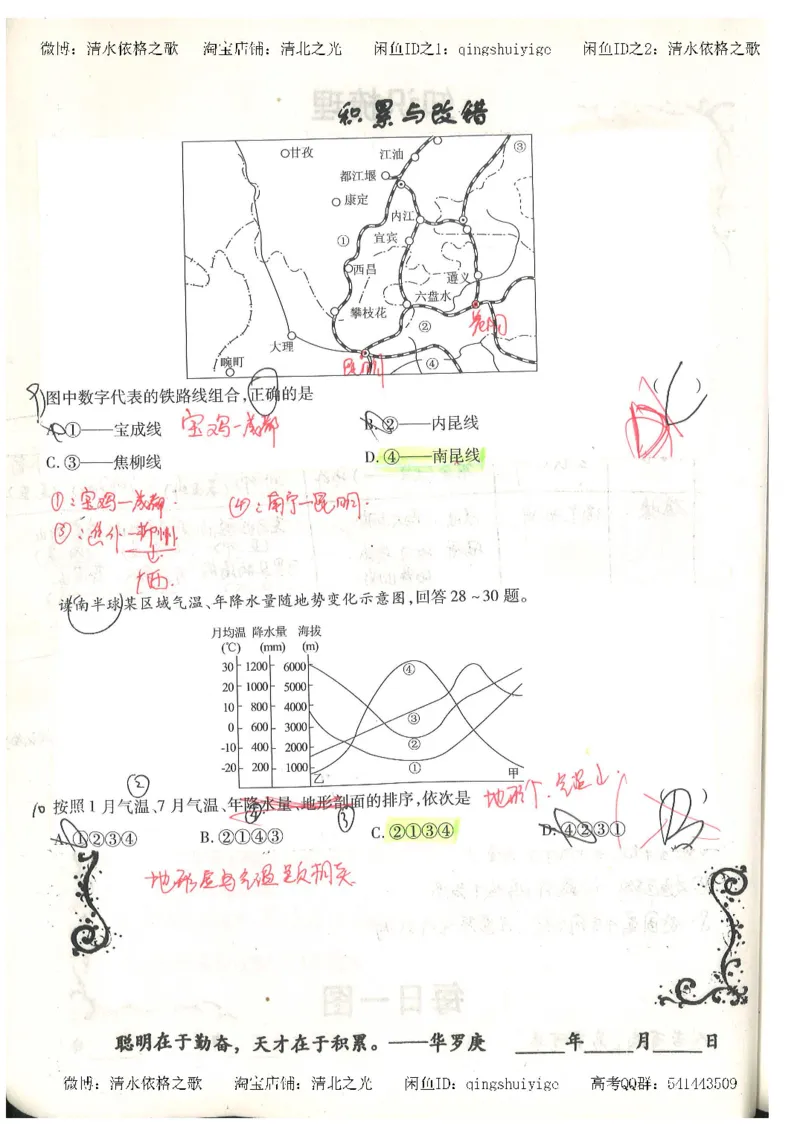 微博：清水依格之歌 淘宝店铺：清北之光 闲鱼ID之1：qingshuiyige 闲鱼ID之2：清水依格之歌
积累与改错
甘孜 江油 ③
都江堰
康定
内江
① 宜宾
西昌
遵义
六盘水
攀枝花 ②
贵阳
大理
昆明
畹町 ④
9) 图中数字代表的铁路线组合，正确的是 ( )
A. ①——宝成线 宝鸡—成都 B. ②——内昆线
C. ③——焦柳线 D. ④——南昆线
①：宝鸡—成都. ④：南宁—昆明.
③：焦作—柳州
广西.
读南半球某区域气温、年降水量随地势变化示意图，回答 28～30 题。
月均温 降水量 海拔
(℃) (mm) (m)
30 1200 6000 ④
20 1000 5000
10 800 4000 ③
0 600 3000
-10 400 2000 ②
-20 200 1000 ①
乙 甲
②
10 按照 1 月气温、7 月气温、年降水量、地形剖面的排序，依次是 ( )
④ ③
A. ①②③④ B. ②①④③ C. ②①③④ D. ④②③①
聪明在于勤奋，天才在于积累。——华罗庚 ____年____月____日
微博：清水依格之歌 淘宝店铺：清北之光 闲鱼ID：qingshuiyige 高考QQ群：541443509